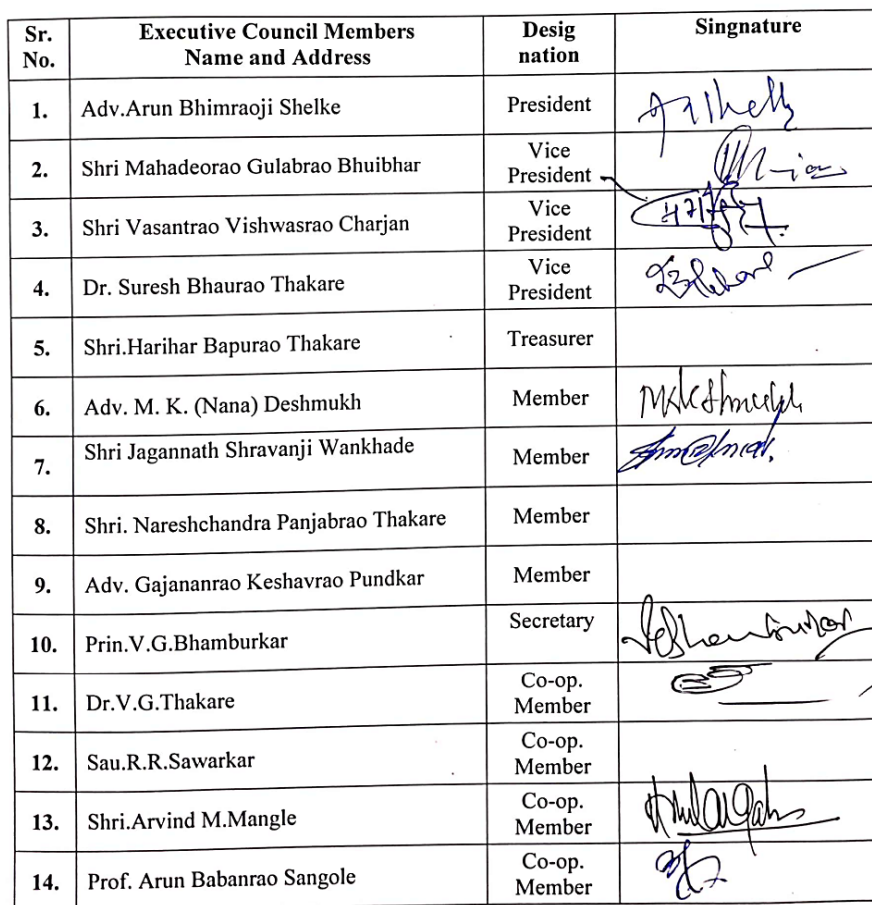 Sr. No. Executive Council Members Name and Address Desig nation Singnature
1. Adv.Arun Bhimraoji Shelke President
2. Shri Mahadeorao Gulabrao Bhuibhar Vice President
3. Shri Vasantrao Vishwasrao Charjan Vice President
4. Dr. Suresh Bhaurao Thakare Vice President
5. Shri.Harihar Bapurao Thakare Treasurer
6. Adv. M. K. (Nana) Deshmukh Member
7. Shri Jagannath Shravanji Wankhade Member
8. Shri. Nareshchandra Panjabrao Thakare Member
9. Adv. Gajananrao Keshavrao Pundkar Member
10. Prin.V.G.Bhamburkar Secretary
11. Dr.V.G.Thakare Co-op. Member
12. Sau.R.R.Sawarkar Co-op. Member
13. Shri.Arvind M.Mangle Co-op. Member
14. Prof. Arun Babanrao Sangole Co-op. Member